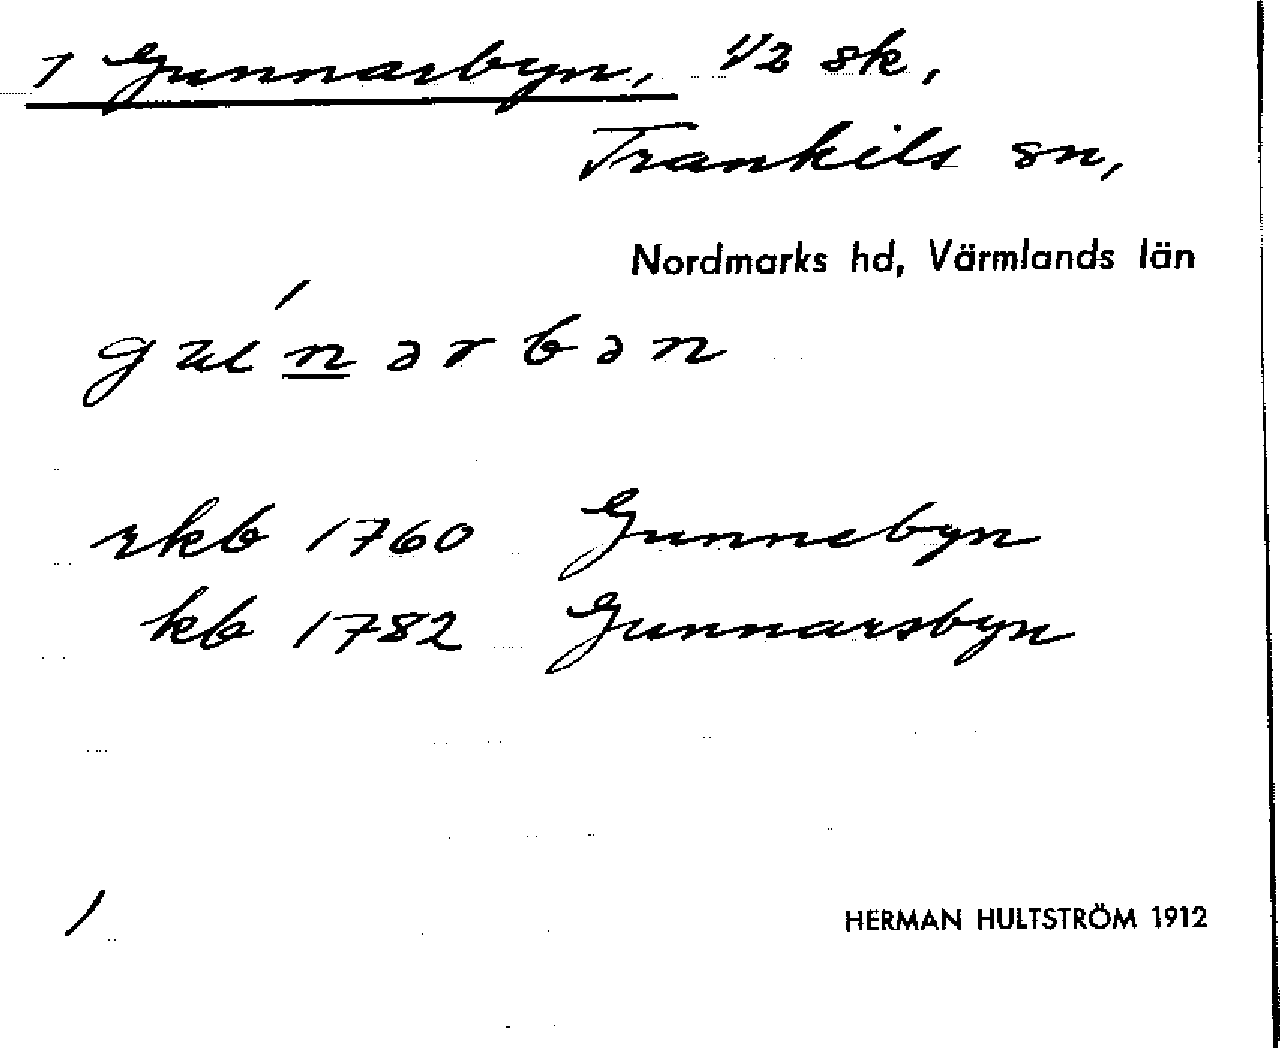 1 Gunnarbyn, 1/2 sk,
Trankils sn,
Nordmarks hd, Värmlands län
rkb 1760 Gunnebyn
kb 1782 Gunnarsbyn
1
HERMAN HULTSTRÖM 1912